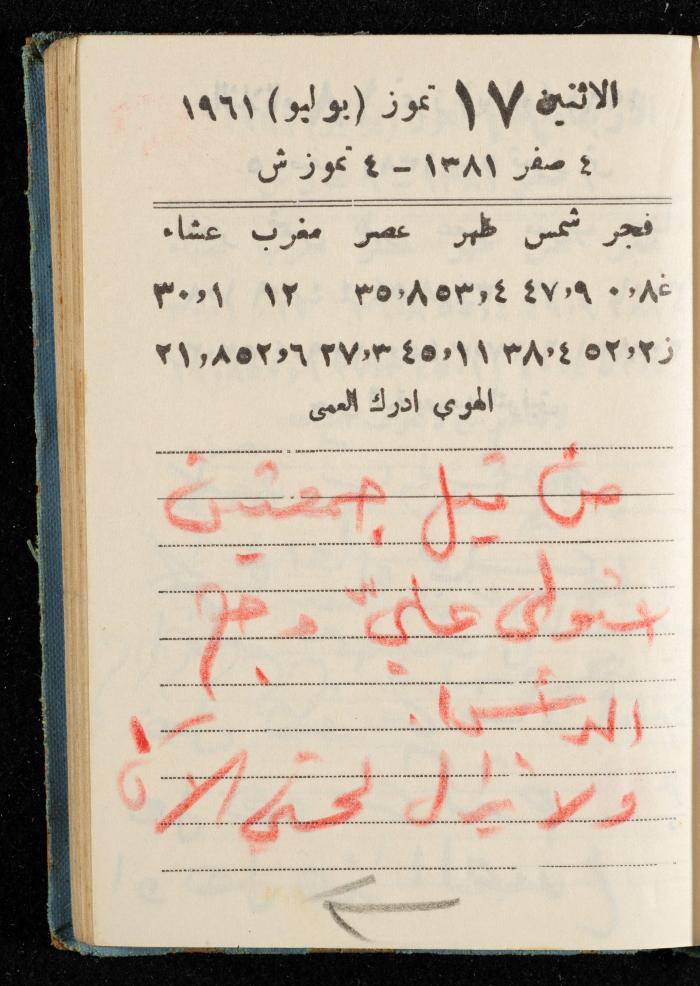 الاثنين ١٧ تموز (يوليو) ١٩٦١
٤ صفر ١٣٨١ - ٤ تموز ش
فجر شمس ظهر عصر مغرب عشاء
غ ٨,٠ ٩,٤٧ ٤,٥٣ ٨,٣٥ ١٢ ١,٣٠
ز ٢,٥٢ ٤,٣٨ ١١,٤٥ ٣,٢٧ ٦,٥٢ ٨,٢١
الهوى ادرك العمى
من قبل جمعتين
استولى عليّ وجع
الرأس.
ولا يزال لحتى الآن